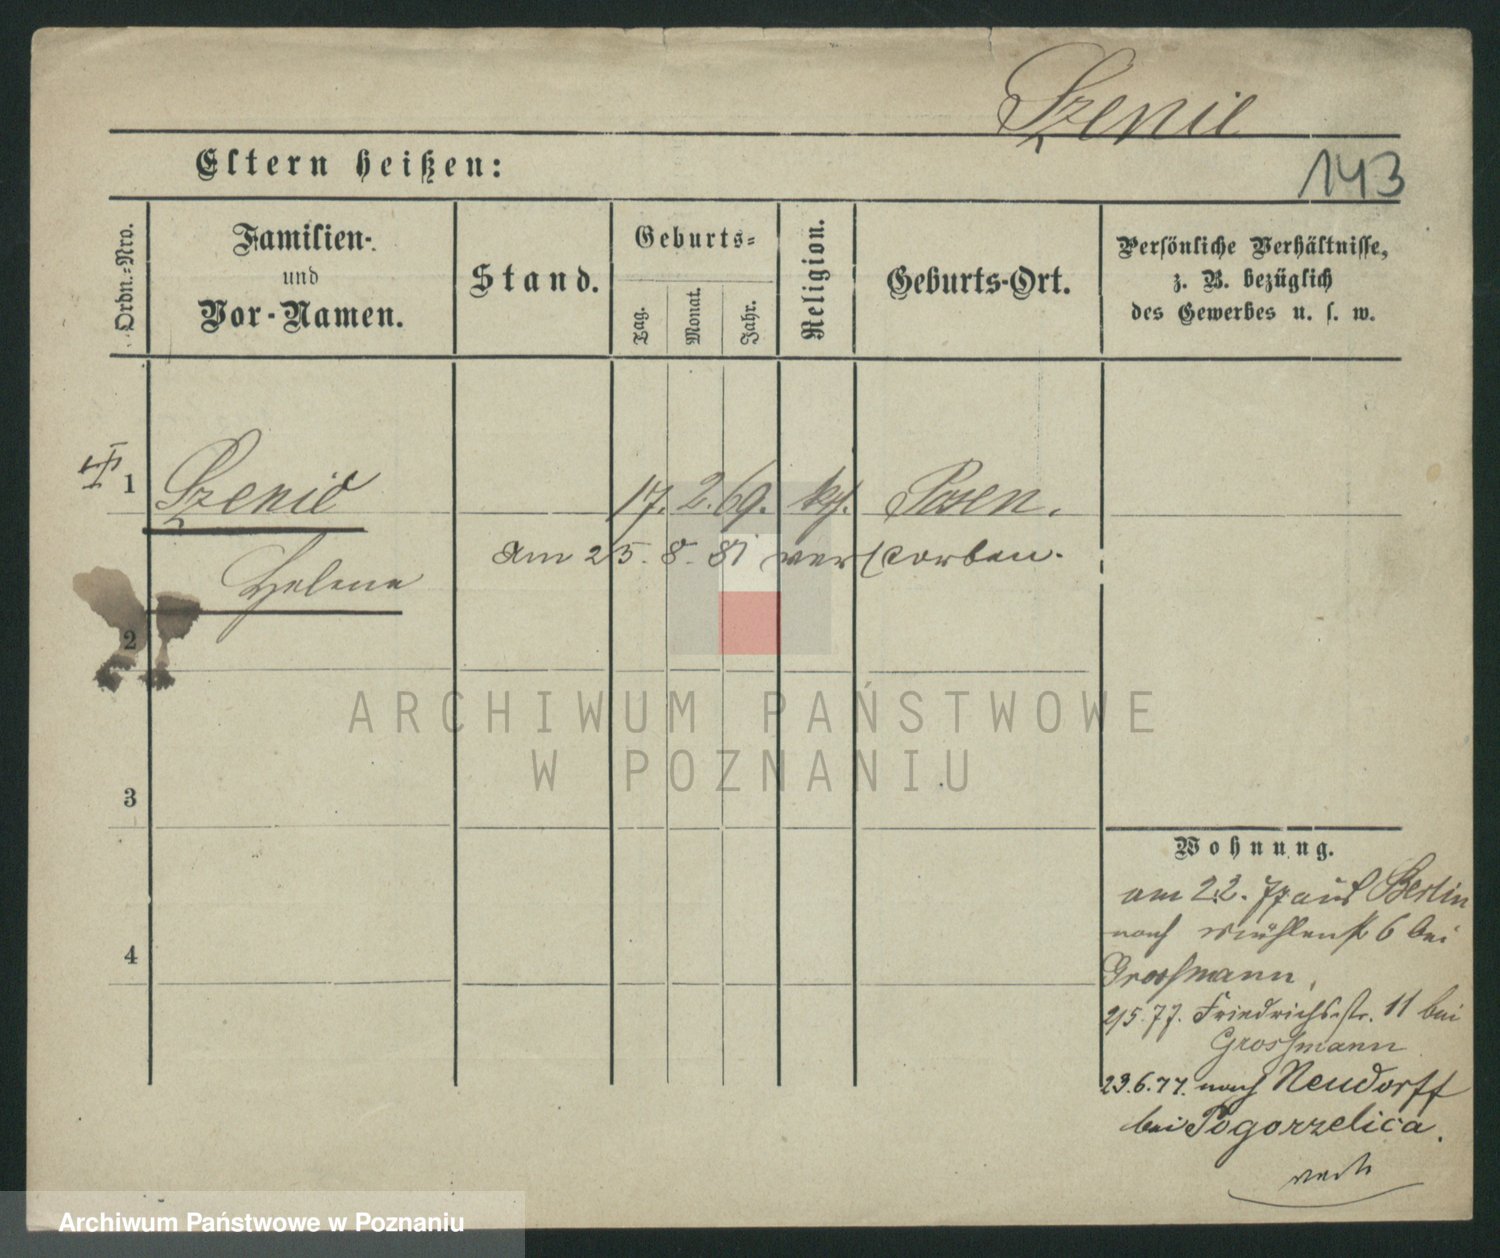 Szenic
Eltern heißen:
143
Ordn.=Nro.
Familien-
und
Vor-Namen.
Stand.
Geburts=
Tag.
Monat.
Jahr.
Religion.
Geburts-Ort.
Persönliche Verhältnisse,
z. B. bezüglich
des Gewerbes u. s. w.
1 Szenic 17. 2. 69. kth. Posen.
am 25. 8. 81 verstorben.
Helena
2
3
4
ARCHIWUM PAŃSTWOWE
W POZNANIU
Wohnung.
am 2.2. 77 aus Berlin
nach Mühlenstr 6 bei
Grossmann,
2/5. 77. Friedrichsstr. 11 bei
Grossmann
23.6.77. nach Neudorff
bei Pogorzelica.
Archiwum Państwowe w Poznaniu